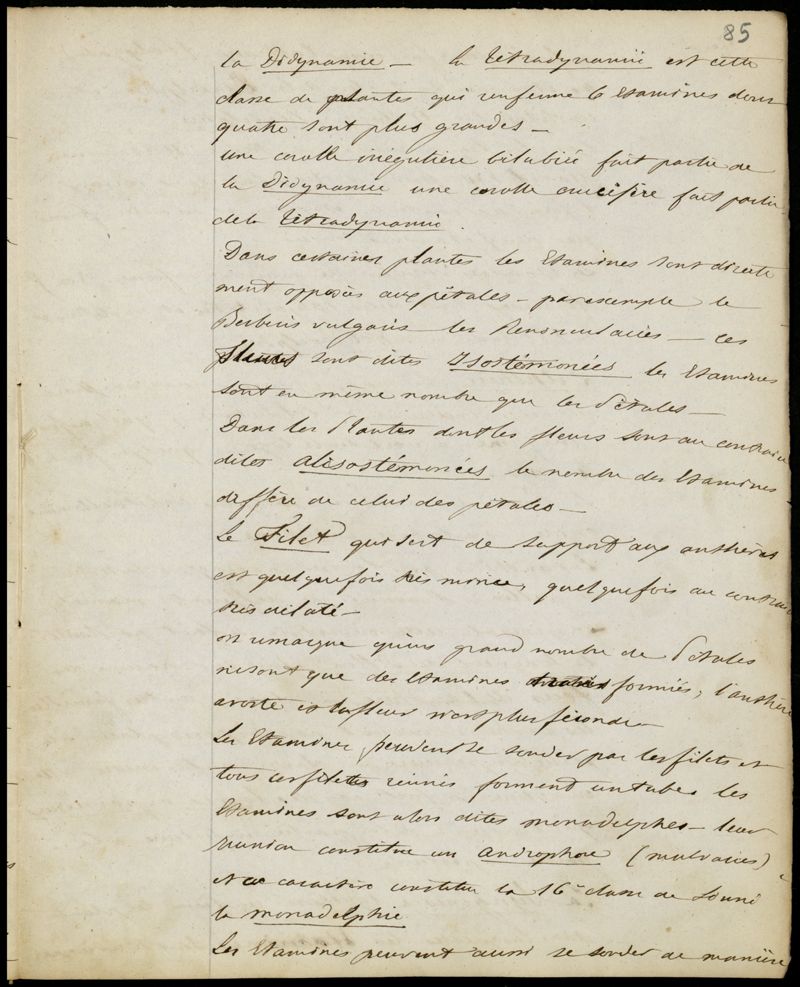 85
la Didynamie — la tétradynamie est cette
classe de plantes qui renferme 6 etamines dont
quatre sont plus grandes —
une corolle irrégulière bilabiée fait partie de
la Didynamie une corolle crucifère fait partie
de la tétradynamie.
Dans certaines plantes les Etamines sont directe
ment opposées aux pétales — par exemple le
Berberis vulgaris les Renonculacées — ces
fleurs sont dites Isostémonées les Etamines
sont en même nombre que les Pétales —
Dans les Plantes dont les fleurs sont au contraire
dites alisostémonées le nombre des Etamines
diffère de celui des pétales —
Le Filet qui sert de support aux anthères
est quelquefois très mince, quelquefois au contraire
très dilaté —
on remarque qu'un grand nombre de Pétales
ne sont que des Etamines formées, l'anthère
avorte et la fleur n'est plus féconde —
Les Etamines peuvent se souder par les filets et
tous ces filets réunis forment un tube les
Etamines sont alors dites monadelphes — leur
réunion constitue un androphore (malvacées)
et ce caractère constitue la 16e classe de Linné
la monadelphie
Les Etamines peuvent aussi se souder de manière